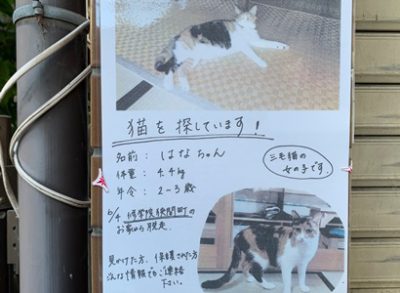 猫を探しています!
名前 : はなちゃん
体重 : 4.4kg
年令 : 2~3歳
三毛猫の
女の子です。
6/4 修学院狭間町の
お家から脱走。
見かけた方、保護された方
どんな情報でもご連絡
下さい。